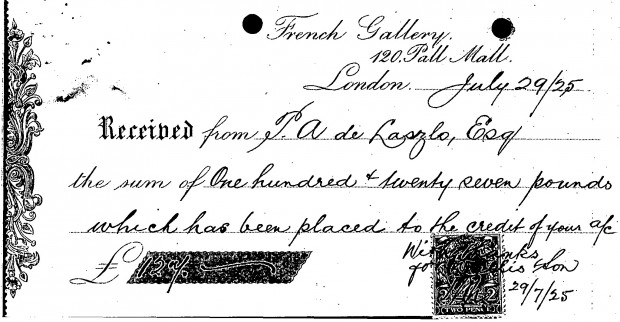 French Gallery.
120. Pall Mall.
London July 29/25
Received from P. A de Laszlo, Esq
the sum of One hundred & twenty seven pounds
which has been placed to the credit of your a/c
With thanks
£ 127/- Son
29/7/25
TWO PENCE